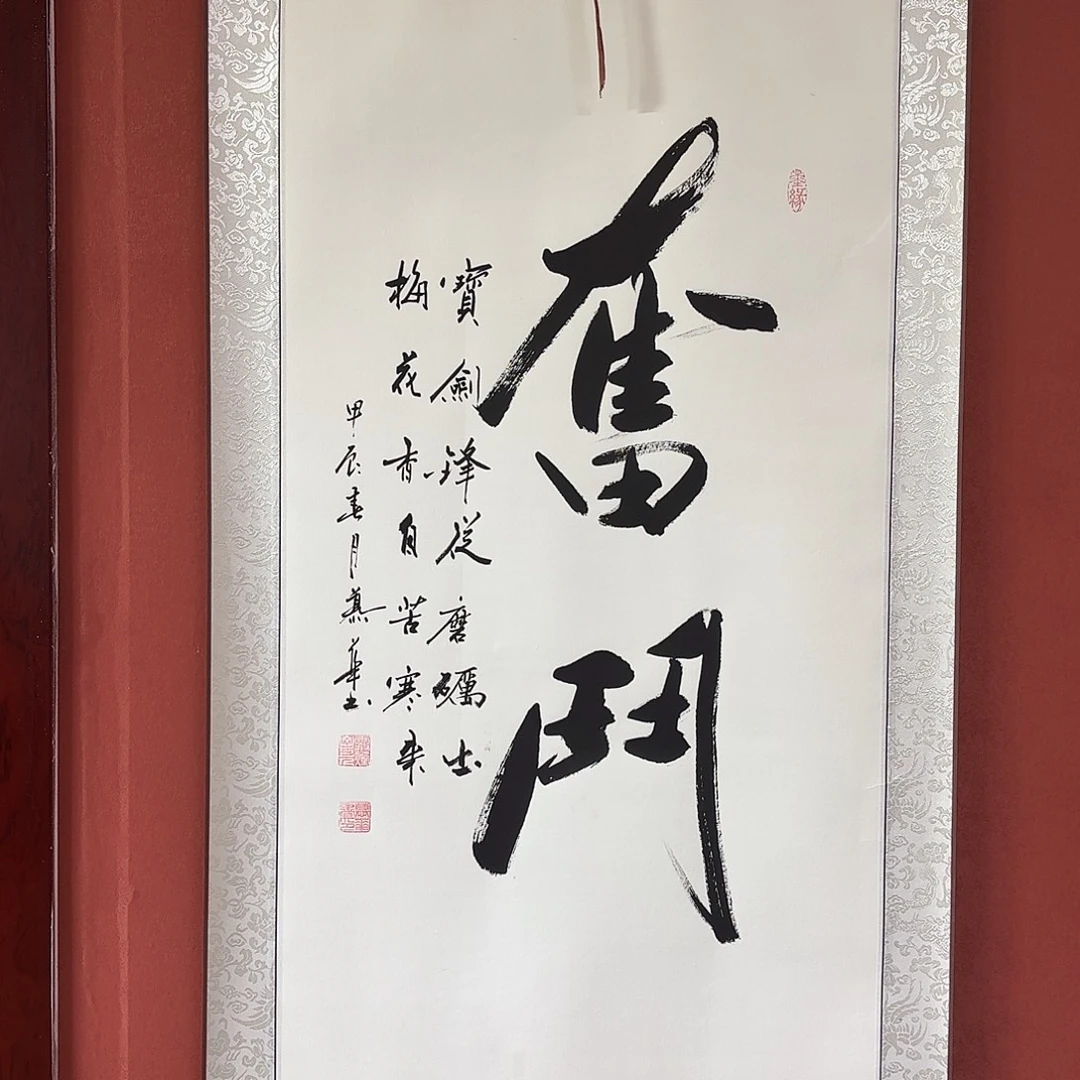 奮鬥
寶劍鋒從磨礪出
梅花香自苦寒来
甲辰春月慕華书